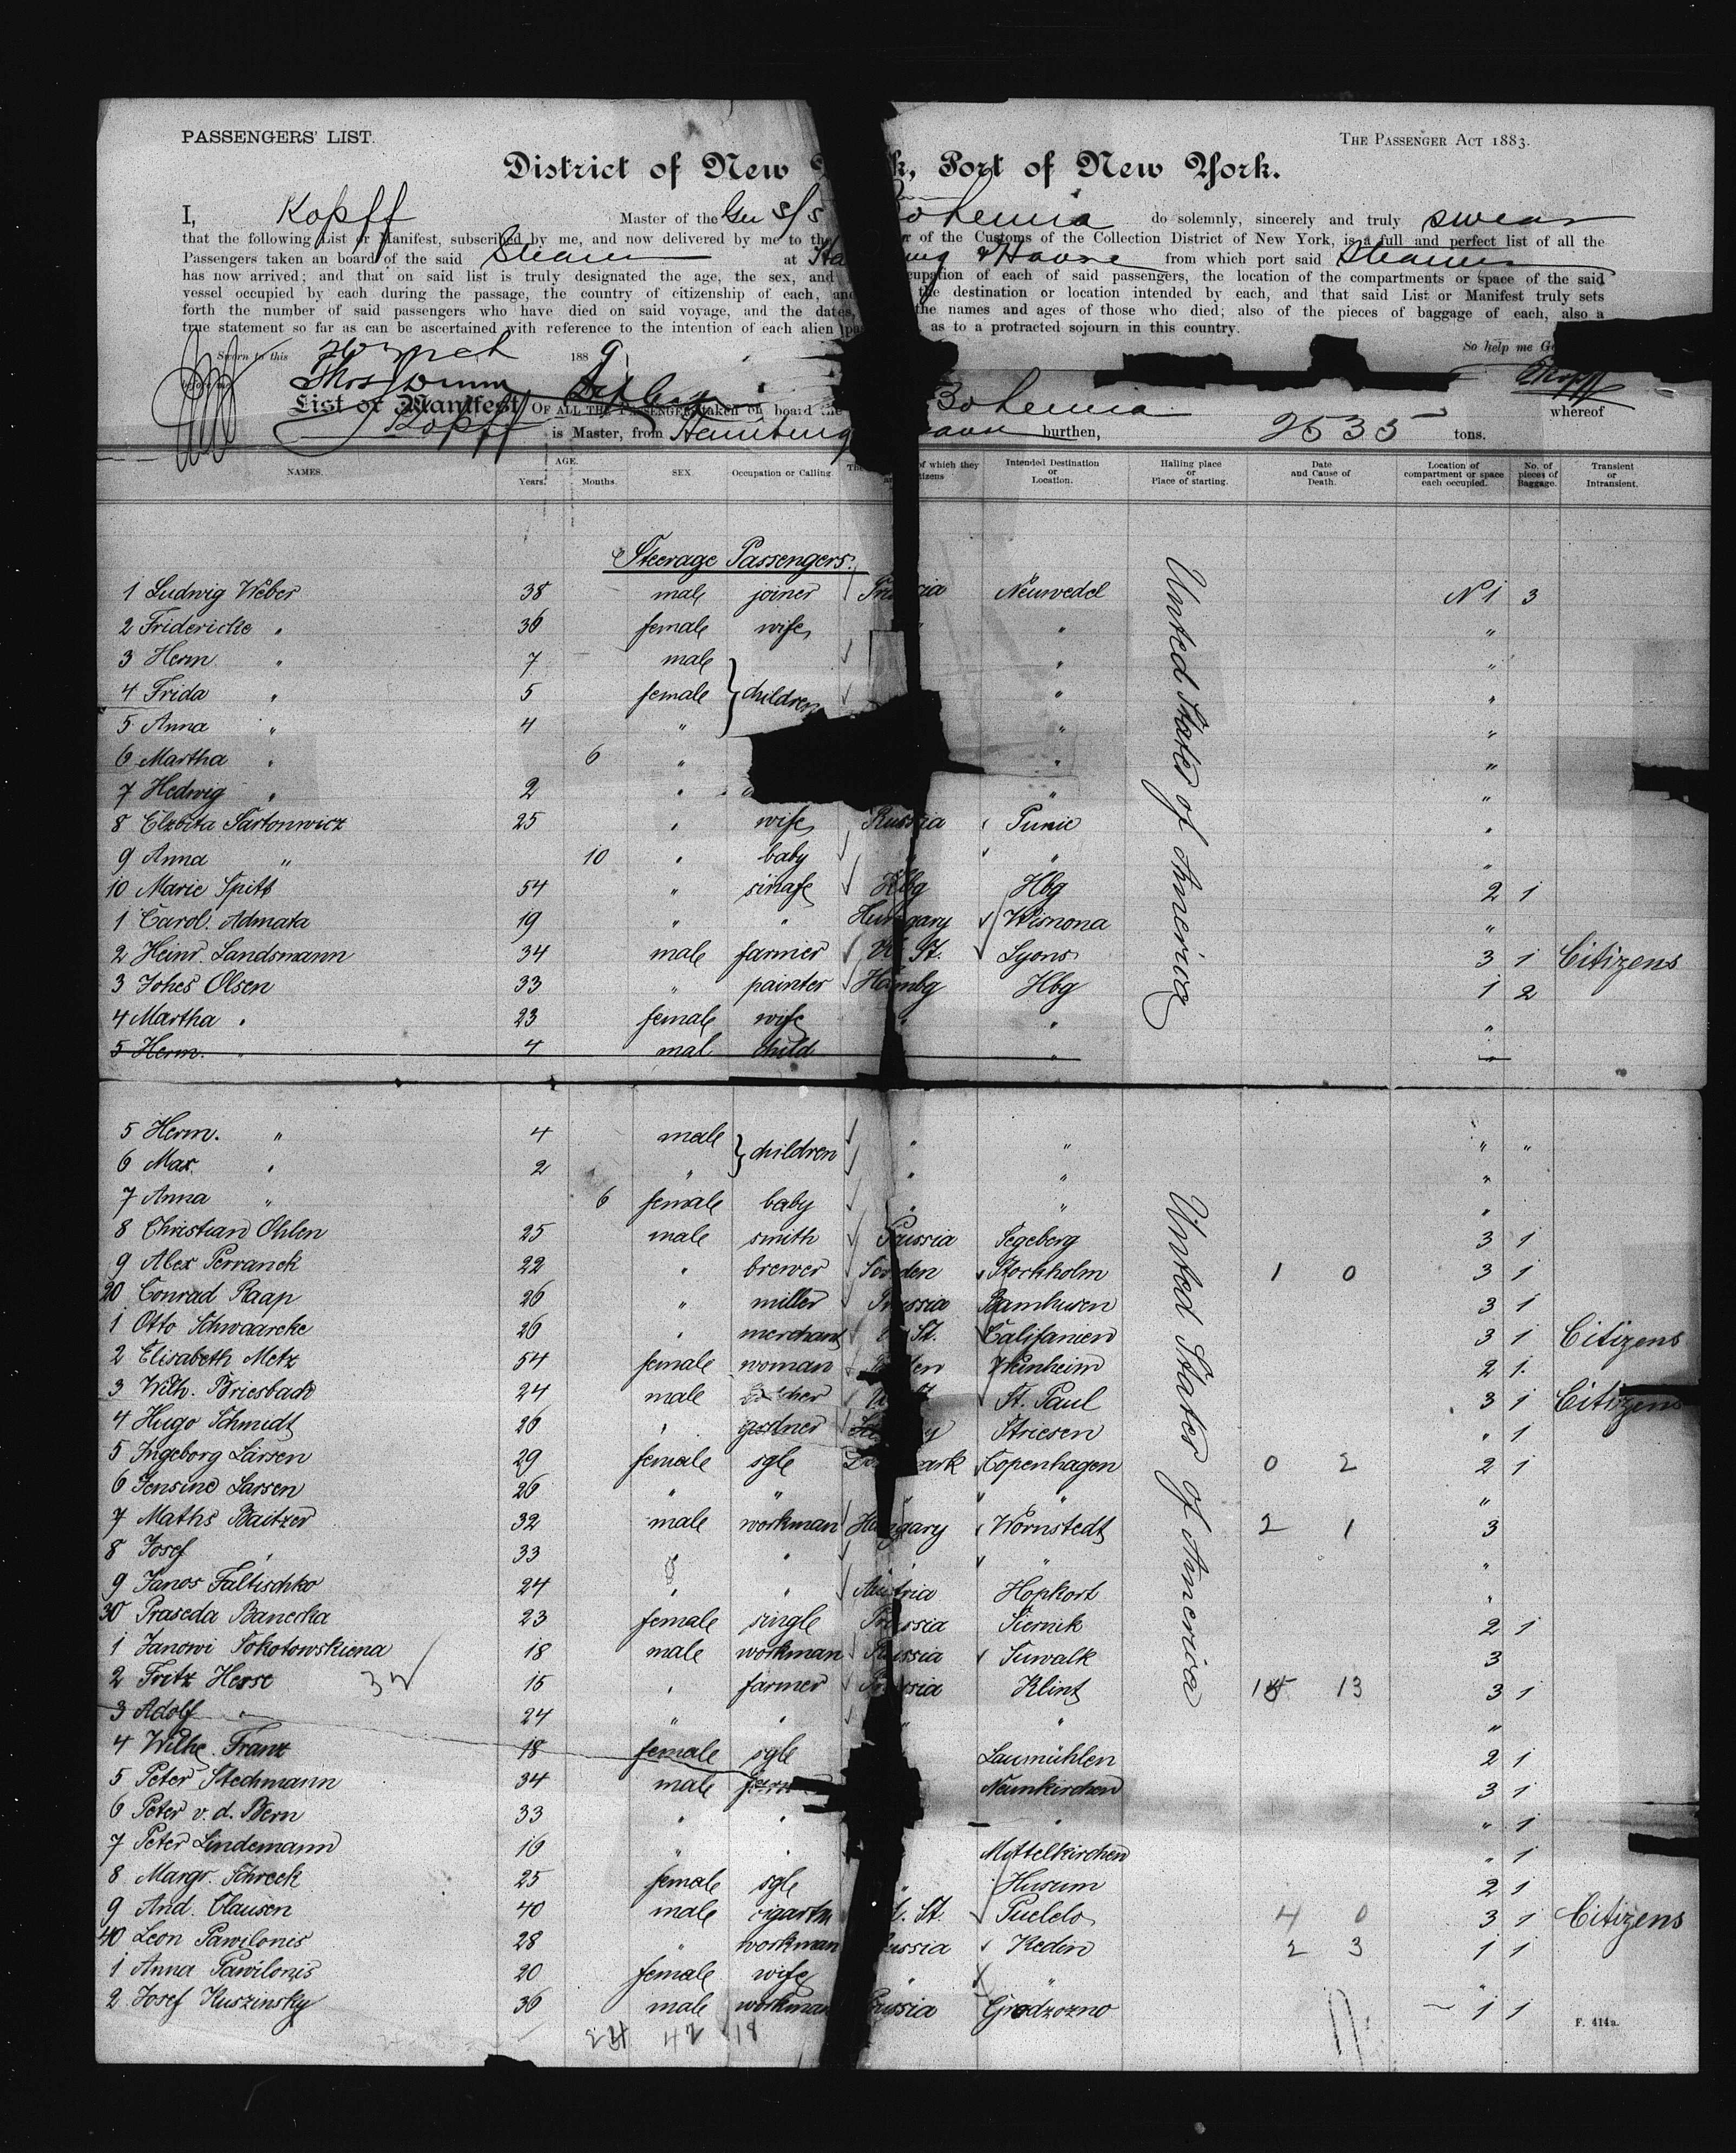 PASSENGERS' LIST.
THE PASSENGER ACT 1883.
District of New k, Port of New York.
I, Kopff Master of the Ger s/s ohemia do solemnly, sincerely and truly swear
that the following List or Manifest, subscribed by me, and now delivered by me to the r of the Customs of the Collection District of New York, is a full and perfect list of all the
Passengers taken on board of the said Steamer at Ha urg & Havre from which port said Steamer
has now arrived; and that on said list is truly designated the age, the sex, and cupation of each of said passengers, the location of the compartments or space of the said
vessel occupied by each during the passage, the country of citizenship of each, and the destination or location intended by each, and that said List or Manifest truly sets
forth the number of said passengers who have died on said voyage, and the dates, the names and ages of those who died; also of the pieces of baggage of each, also a
true statement so far as can be ascertained with reference to the intention of each alien pas as to a protracted sojourn in this country.
Sworn to this 1889
So help me G
Kopff
List or Manifest OF ALL THE PASSENGERS taken on board the Bohemia whereof
Kopff is Master, from Hamburg burthen, 2635 tons.
NAMES. AGE. Years. Months. SEX. Occupation or Calling. of which they citizens Intended Destination or Location. Halling place or Place of starting. Date and Cause of Death. Location of compartment or space each occupied. No. of pieces of Baggage. Transient or Intransient.
Steerage Passengers.
United States of America
1 Ludwig Weber 38 male joiner Prussia Neuwedel N 1 3
2 Fridericke " 36 female wife " " "
3 Herm " 7 male " "
4 Frida " 5 female children " "
5 Anna " 4 " " "
6 Martha " 6 " " "
7 Hedwig " 2 " " " "
8 Elzbita Sartonwicz 25 " wife Russia Punie "
9 Anna " 10 " baby " " "
10 Marie Spitt 54 " single Hbg Hbg 2 1
1 Carol. Admata 19 " " Hungary Wisnona "
2 Heinr. Landsmann 34 male farmer U. St. Lyons 3 1 Citizens
3 Johes Olsen 33 " painter Hambg Hbg 1 2
4 Martha " 23 female wife " " "
5 Herm. " 4 mal child " "
5 Herm. " 4 male children " " " "
6 Max " 2 " " " "
7 Anna " 6 female baby " " "
8 Christian Ohlen 25 male smith Prussia Segeberg 3 1
9 Alex Perranek 22 " brewer Sweden Stockholm 1 0 3 1
20 Conrad Raap 26 " miller Prussia Bamhusen 3 1
1 Otto Schwaarcke 26 " merchant St. Califanien 3 1 Citizens
2 Elisabeth Metz 54 female woman Weinheim 2 1.
3 Wilh. Briesbach 24 male St. Paul 3 1 Citizens
4 Hugo Schmidt 26 " gardner Striesen " 1
5 Ingeborg Larsen 29 female sgle ark Copenhagen 0 2 2 1
6 Jensine Larsen 26 " " " " "
7 Maths Baitzer 32 male workman Hungary Wornstedt 2 1 3
8 Josef " 33 " " " " "
9 Janos Faltischko 24 " " Austria Hopkort "
30 Praseda Banecka 23 female single Prussia Siernik 2 1
1 Janowi Sokotowskiena 18 male workman Russia Suwalk 3
2 Fritz Hesse 15 " farmer Prussia Klint 13 3 1
3 Adolf " 24 " " " " "
4 Wilhe. Franz 18 female sgle Laumühlen 2 1
5 Peter Stechmann 34 male farm Neunkirchen 3 1
6 Peter v. d. Bern 33 " " " " 1
7 Peter Lindemann 16 " " Mittelkirchen " 1
8 Margr. Schreck 25 female sgle " Husum 2 1
9 And. Clausen 40 male cigarm St. Pueblo 4 0 3 1 Citizens
40 Leon Pawilonis 28 " workman ussia Kedin 2 3 1 1
1 Anna Pawilonis 20 female wife " " "
2 Josef Kuszinsky 36 male workman ussia Grodzozno 1 1
United States of America
42 18
F. 414a.